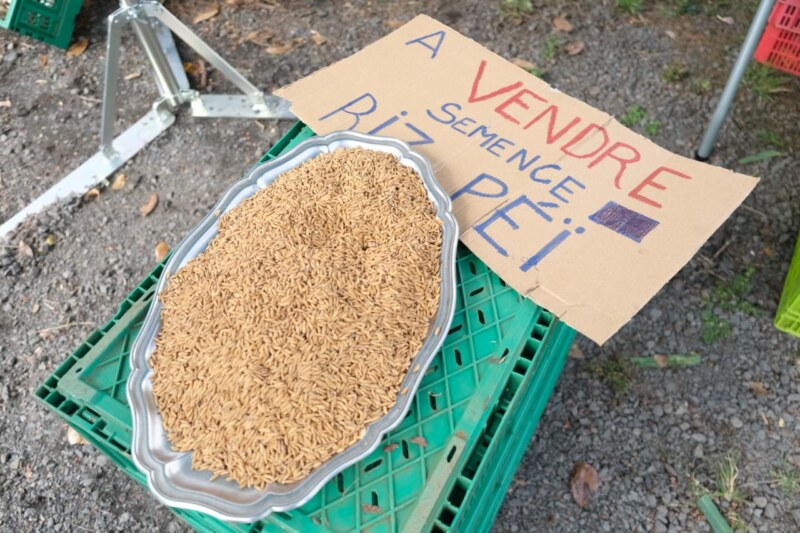 A VENDRE
SEMENCE
RIZ PÉÏ